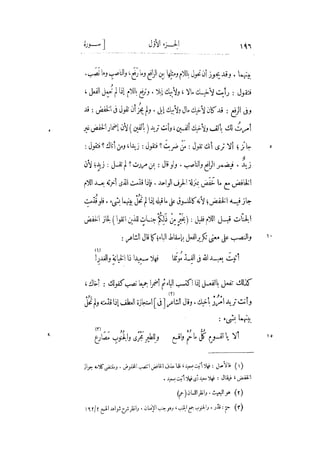 ١٩٦ الجزء الأول [ سورة
بينهما . وقد يجوز أن تحول باللام ومثلها بين الرافع وما رفع، والناصب وما نصب.
فتقول : رأيت لأخيك مالا ، ولأبيك إبلا . وترفع باللام إذا لم تُعمل الفعل ،
وفى الرفع : قد كان لأخيك مال ولأبيك إبل . ولم يجز أن تقول فى الخفض : قد
أمرت لك بألف ولأخيك ألفين ، وأنت تريد ( بألفين ) لأن إضمار الخفض غير
جائز ؛ ألا ترى أنك تقول : مَن ضربتَ ؟ فتقول : زيدا، ومن أتاك ؟ فتقول :
زيدٌ . فيضمر الرافع والناصب . ولو قال : بمن مررت ؟ لم تقل : زيدٍ ؛ لأن
الخافض مع ما خَفَض بمنزلة الحرف الواحد . فإذا قدّمت الذى أخرته بعد اللام
جاز فيه الخفض؛ لأنه كالمنسوق على ما قبله إذا لم تَحُل بينهما بشىء . فلو قُدّمت
الجنات قبل اللام فقيل : ( بخير من ذلكم جناتٍ للذين اتقوا ) لجاز الخفض
والنصب على معنى تكرير الفعل بإسقاط الباء كما قال الشاعر :
أتيتَ بعبد الله فى القِدّ مُوثَقا فهلّا سعيدا ذا الخيانة والغَدر (١)
كذلك تفعل بالفعل إذا اكتسب الباء ثم أضمرا جميعا نصب كقولك : أخاك ،
وأنت تريد امْرُرْ بأخيك . وقال الشاعر (٢) [ فى ] استجازة العطف إذا قدّمته ولم تَحُل
بينهما بشىء :
ألا يا لقوم كُلُّ ما حُمَّ واقع وللطير مَجْرى والجُنُوب مصارع (٣)
(١) فالأصل : فهلا أتيت بسعيد ، فلما حذف الخافض انتصب المخفوض . ومقتضى كلامه جواز
الخفض ؛ فيقال : فهلا سعيد أى فهلا أتيت بسعيد .
(٢) هو البعيث . وانظر اللسان ( حم )
(٣) حم : قدّر ، والجنوب جمع الجنب ، وهو جنب الإنسان . وانظر شرح شواهد الهمع ٢/١٩٢